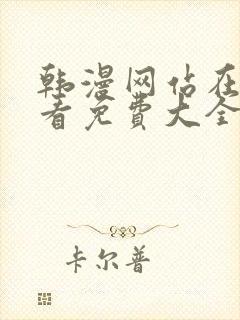 韩漫网站在
看免费大全
卡尔普